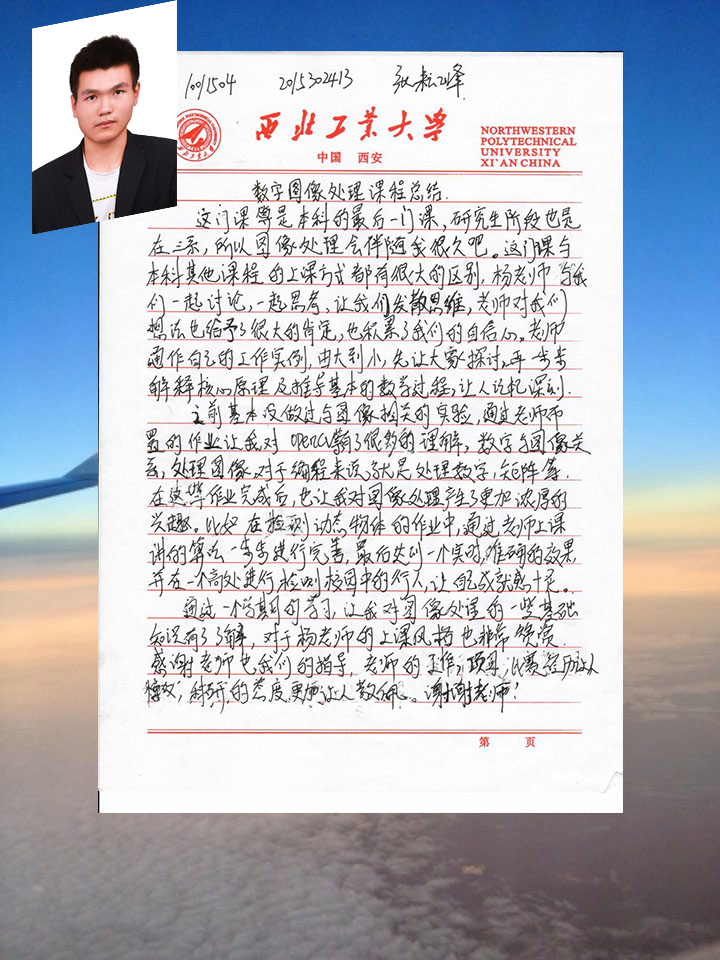 10011504 2015302413 张耘峰
西北工业大学
中国 西安
NORTHWESTERN
POLYTECHNICAL
UNIVERSITY
XI`AN CHINA
数字图像处理课程总结.
这门课算是本科的最后一门课，研究生阶段也是
在三系，所以图像处理会伴随我很久吧。这门课与
本科其他课程的上课方式都有很大的区别，杨老师与我
们一起讨论，一起思考，让我们发散思维，老师对我们
想法也给予了很大的肯定，也积累了我们的自信心。老师
通作自己的工作实例，由大到小，先让大家探讨，再一步步
解释核心原理及推导基本的数学过程，让人记忆深刻.
之前基本没做过与图像相关的实验，通过老师布
置的作业让我对opencv有了很多的理解，数字与图像关
系，处理图像对于编程来说就是处理数字，矩阵等.
在这些作业完成后，也让我对图像处理产生了更加浓厚的
兴趣。比如在检测动态物体的作业中，通过老师上课
讲的算法一步步进行完善，最后达到一个实时，准确的效果，
并在一个高处进行检测校园中的行人，让自己成就感十足。
通过一个学期的学习，让我对图像处理的一些基础
知识有了了解，对于杨老师的上课风格也非常欣赏.
感谢老师也我们的指导，老师的工作，项目，比赛经历让人
惊叹，科研的态度更加让人敬佩。谢谢老师！
第 页